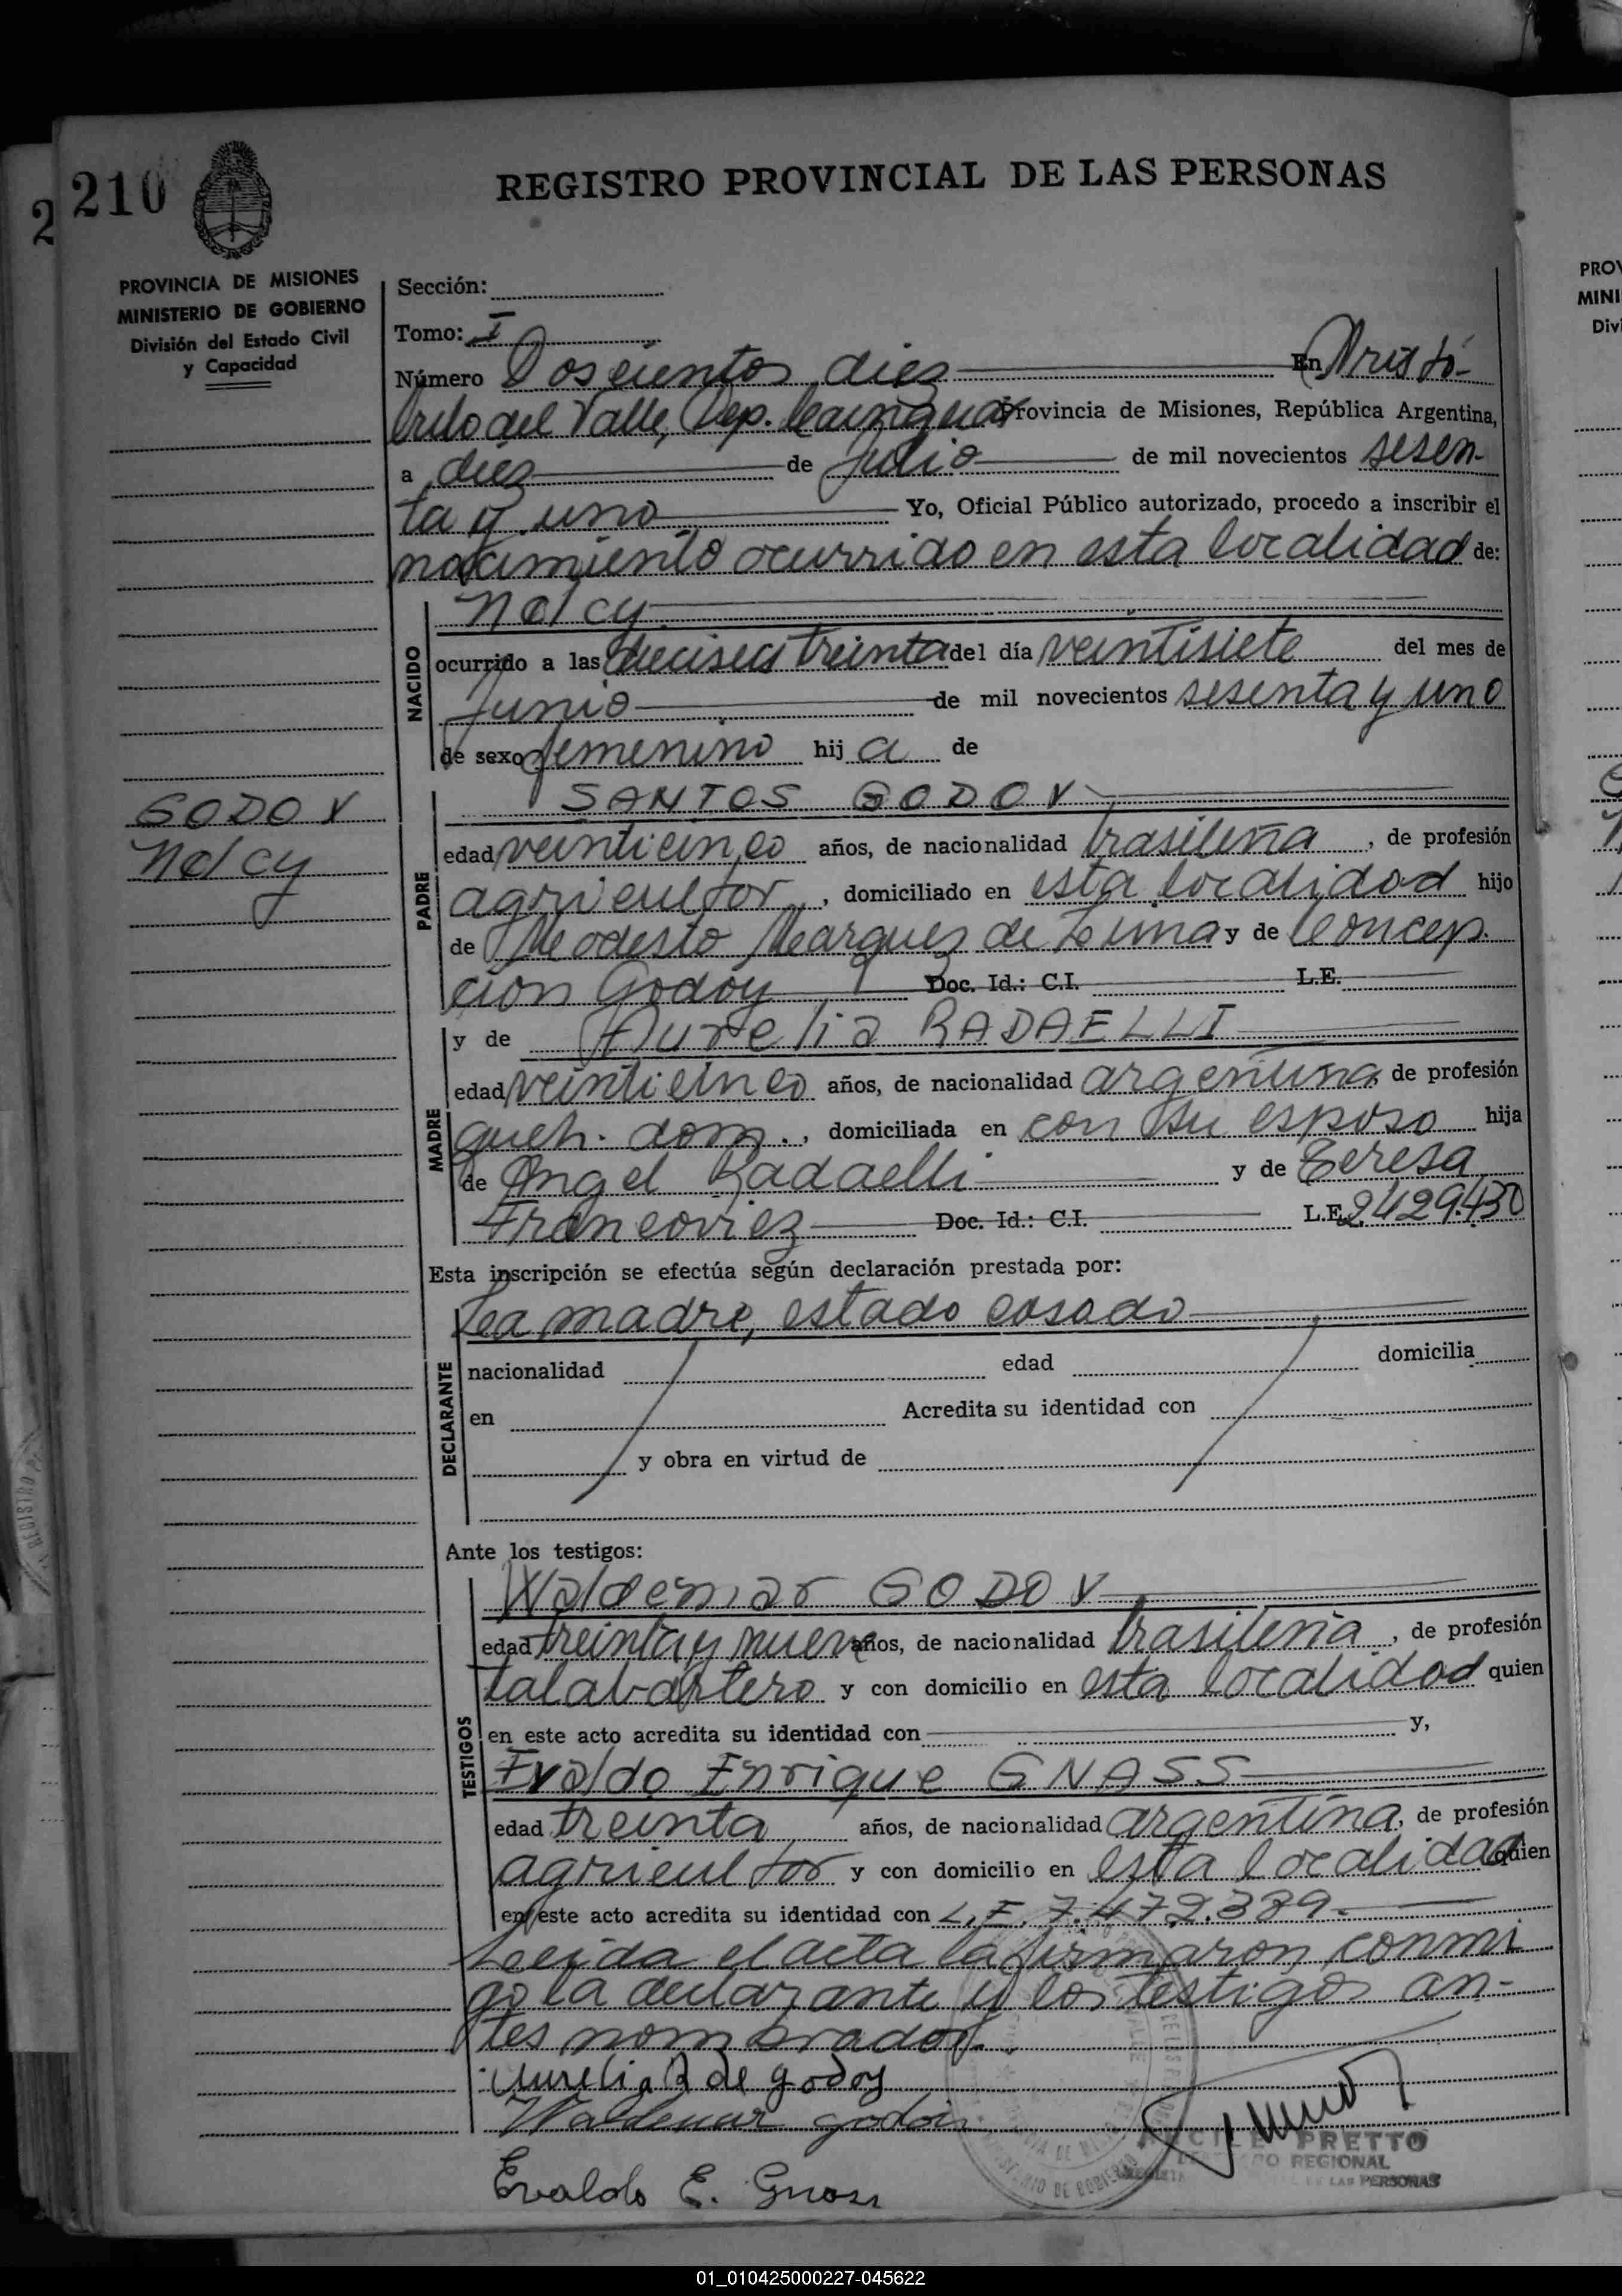 210
2
REGISTRO PROVINCIAL DE LAS PERSONAS
PROVINCIA DE MISIONES
MINISTERIO DE GOBIERNO
División del Estado Civil
y Capacidad
Sección:
Tomo: I
Número Doscientos diez En Aristó-
bulo del Valle, Dep. Cainguas Provincia de Misiones, República Argentina,
a diez de Julio de mil novecientos sesen-
ta y uno Yo, Oficial Público autorizado, procedo a inscribir el
nacimiento ocurrido en esta localidad de:
NACIDO
Nelcy
ocurrido a las dieciseis treinta del día veintisiete del mes de
Junio de mil novecientos sesenta y uno
de sexo femenino hij a de
GODOY
Nelcy
PADRE
SANTOS GODOY
edad veinticinco años, de nacionalidad brasileña, de profesión
agricultor, domiciliado en esta localidad hijo
de Modesto Marques de Lima y de Concep
ción Godoy Doc. Id.: C.I. L.E.
MADRE
y de Aurelia RADAELLI
edad veinticinco años, de nacionalidad argentina de profesión
queh. dom., domiciliada en con su esposo hija
de Angel Radaelli y de Teresa
Francoviez Doc. Id.: C.I. L.E. 2429.430
Esta inscripción se efectúa según declaración prestada por:
DECLARANTE
La madre, estado casado
nacionalidad edad domicilia
en Acredita su identidad con
y obra en virtud de
Ante los testigos:
TESTIGOS
Waldemar GODOY
edad treinta y nueve años, de nacionalidad brasileña, de profesión
talabartero y con domicilio en esta localidad quien
en este acto acredita su identidad con y,
Evaldo Enrique GNASS
edad treinta años, de nacionalidad argentina, de profesión
agricultor y con domicilio en esta localidad quien
en este acto acredita su identidad con L.E. 7.472.389.-
Leida el acta la firmaron conmi
go la declarante y los testigos an-
tes nombrados.
Aurelia R de godoy
Waldemar godoi
Evaldo E. Gnass
PRETTO
REGIONAL
DE LAS PERSONAS
PROV
MINI
Divi
01_010425000227-045622